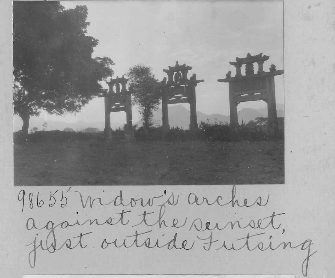 98655 Widow's arches
against the sunset,
just outside Futsing